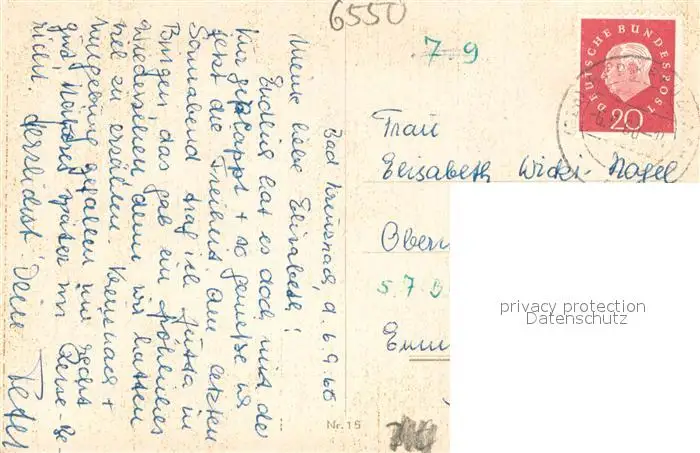 6550
7-9
DEUTSCHE BUNDESPOST
20
Bad Kreuznach, d. 6.9.60
Meine liebe Elisabeth!
Endlich hat es doch mit der
Kur geklappt + so geniesse ich
jetzt die Freiheit. Am letzten
Sonnabend traf ich Jutta in
Bingen das gab ein fröhliches
Wiedersehen denn wir hatten
viel zu erzählen. Kreuznach +
Umgebung gefallen mir recht
gut. Näheres später im Reise-Be-
richt. Herzlichst Deine
Peter
Frau
Elisabeth Wicki-Nagel
Obern
5.7.B
Emm
Nr. 15
privacy protection
Datenschutz